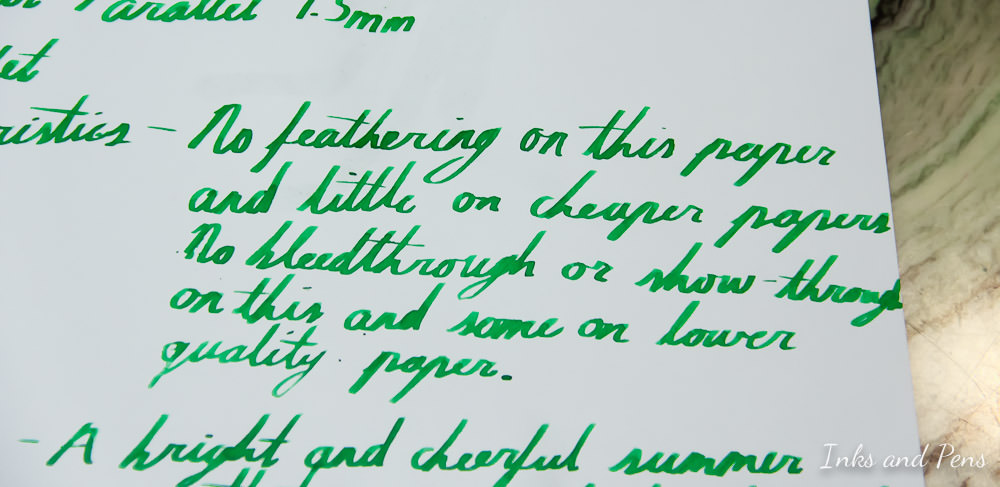 Parallel 1.5mm
ristics - No feathering on this paper
and little on cheaper papers
No bleedthrough or show-through
on this and some on lower
quality paper.
- A bright and cheerful summer
Inks and Pens